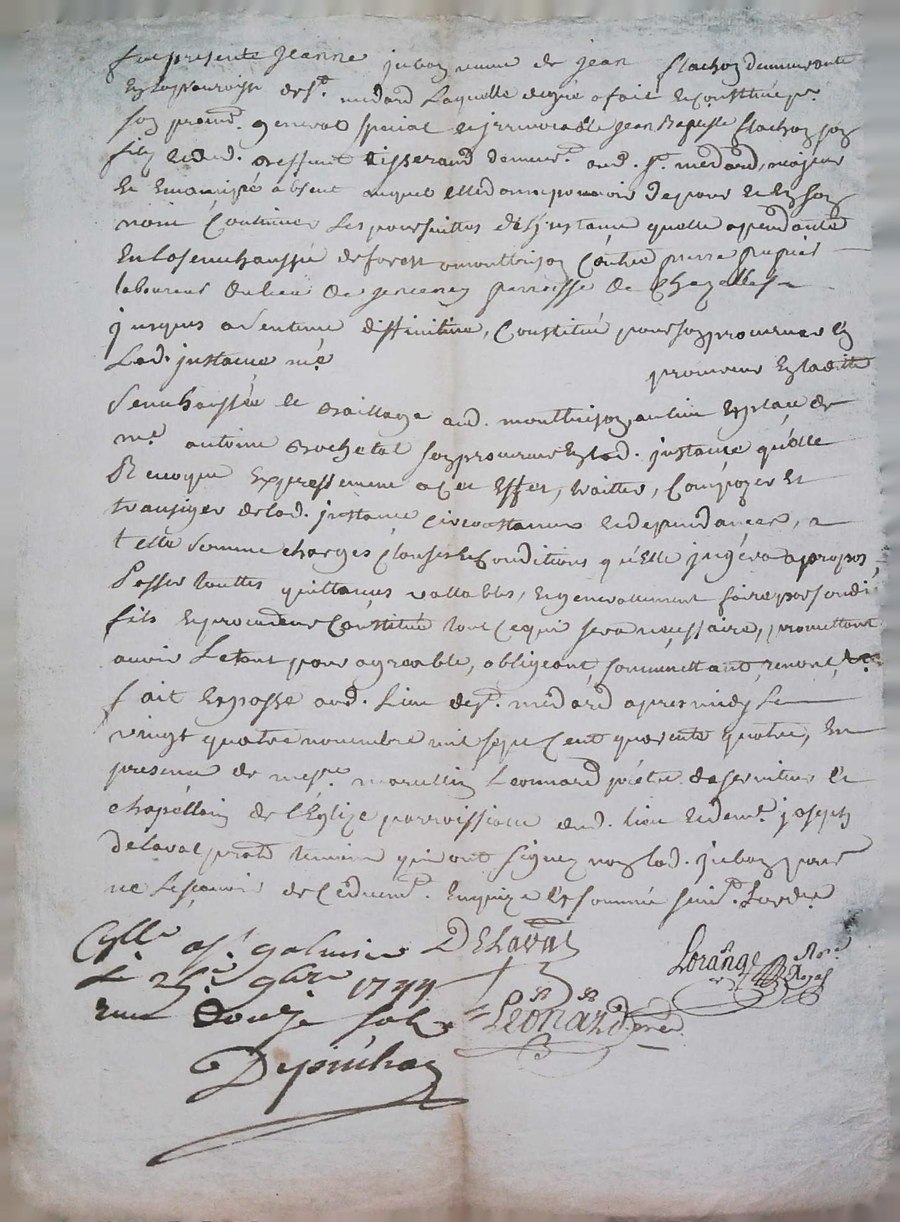 fut presente Jeanne jubaz veuve de jean flachoz demeurante
En la parroisse de St. medard Laquelle de gré a fait et Constitué pr.
soz procur. general special et jrrevocable jean Baptiste flachoz soz
fils et dud. deffunt tisserand demeurt. aud. St. medard, majeur
et Emancipé absent auquel elle donne pouvoir de pour et en soz
nom Continuer Les poursuittes de l'jnstance quelle a pendante
En la senechaussée de forest a montbrisoz Contre pierre
laboureur du lieu de parroisse de Chazelles
jusques a sentence diffinitive, Constitué pour soz procureur Ez
Lad. jnstance me.
procureur Ez ladite
senechaussée et Baillage aud. montbrisoz au lieu Et place de
me. antoine Rochetal soz procureur Ez lad. jnstance qu'elle
Revoque Expressement a Cet Effet, traitter, Composer Et
transiger de lad. jnstance circonstances et dependances, a
telle somme charges Clauses et Conditions qu'Elle jugera apropos,
Passer touttes quittances vallables, et generallement faire par sondit
fils et procureur Constitué tout ce qui sera necessaire, promettant
avoir Le tout pour agreable, obligeant, soummettant, renonc. &c
fait et passé aud. Lieu de St. medard apres midy Le
vingt quatre novembre mil sept Cent quarente quatre, En
presence de messe. marcellin Leonnard prêtre desserviteur et
chapellain de l'Eglize parroissialle dud. lieu et de me. joseph
delaval prat. temoins qui ont signez noz lad. jubaz pour
ne Le sçavoir de Ce Enquize et sommée suivt. Lordce.
DELaval
Lorange Nore. Royal
Leonard pre.
Cylle. a St. galmier
Le 25e. 9bre 1744
Reçu Douze sols